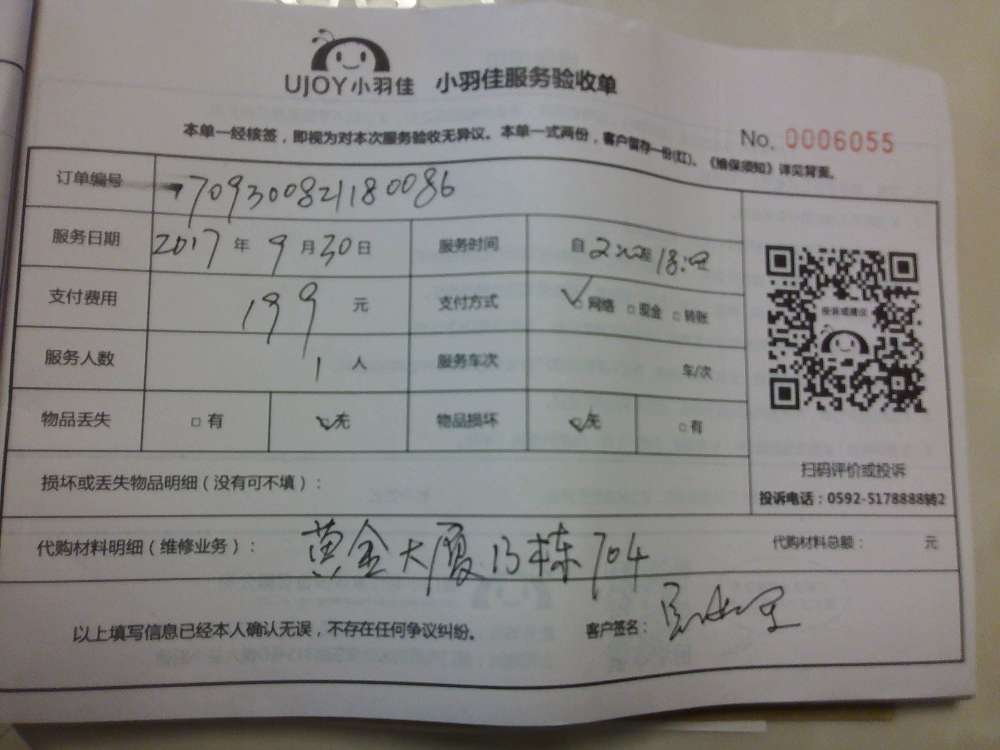 UJOY小羽佳 小羽佳服务验收单
本单一经核签，即视为对本次服务验收无异议。本单一式两份，客户留存一份(红)、《维保须知》详见背面。
No. 0006055
订单编号 709300821180086
服务日期 2017年9月30日 服务时间 自 至
支付费用 199元 支付方式 ✓网络 □现金 □转账
服务人数 1人 服务车次 车/次
物品丢失 □有 ✓无 物品损坏 ✓无 □有
投诉或建议
扫码评价或投诉
投诉电话：0592-5178888转2
损坏或丢失物品明细（没有可不填）：
代购材料明细（维修业务）： 黄金大厦 栋704 代购材料总额： 元
以上填写信息已经本人确认无误，不存在任何争议纠纷。 客户签名：